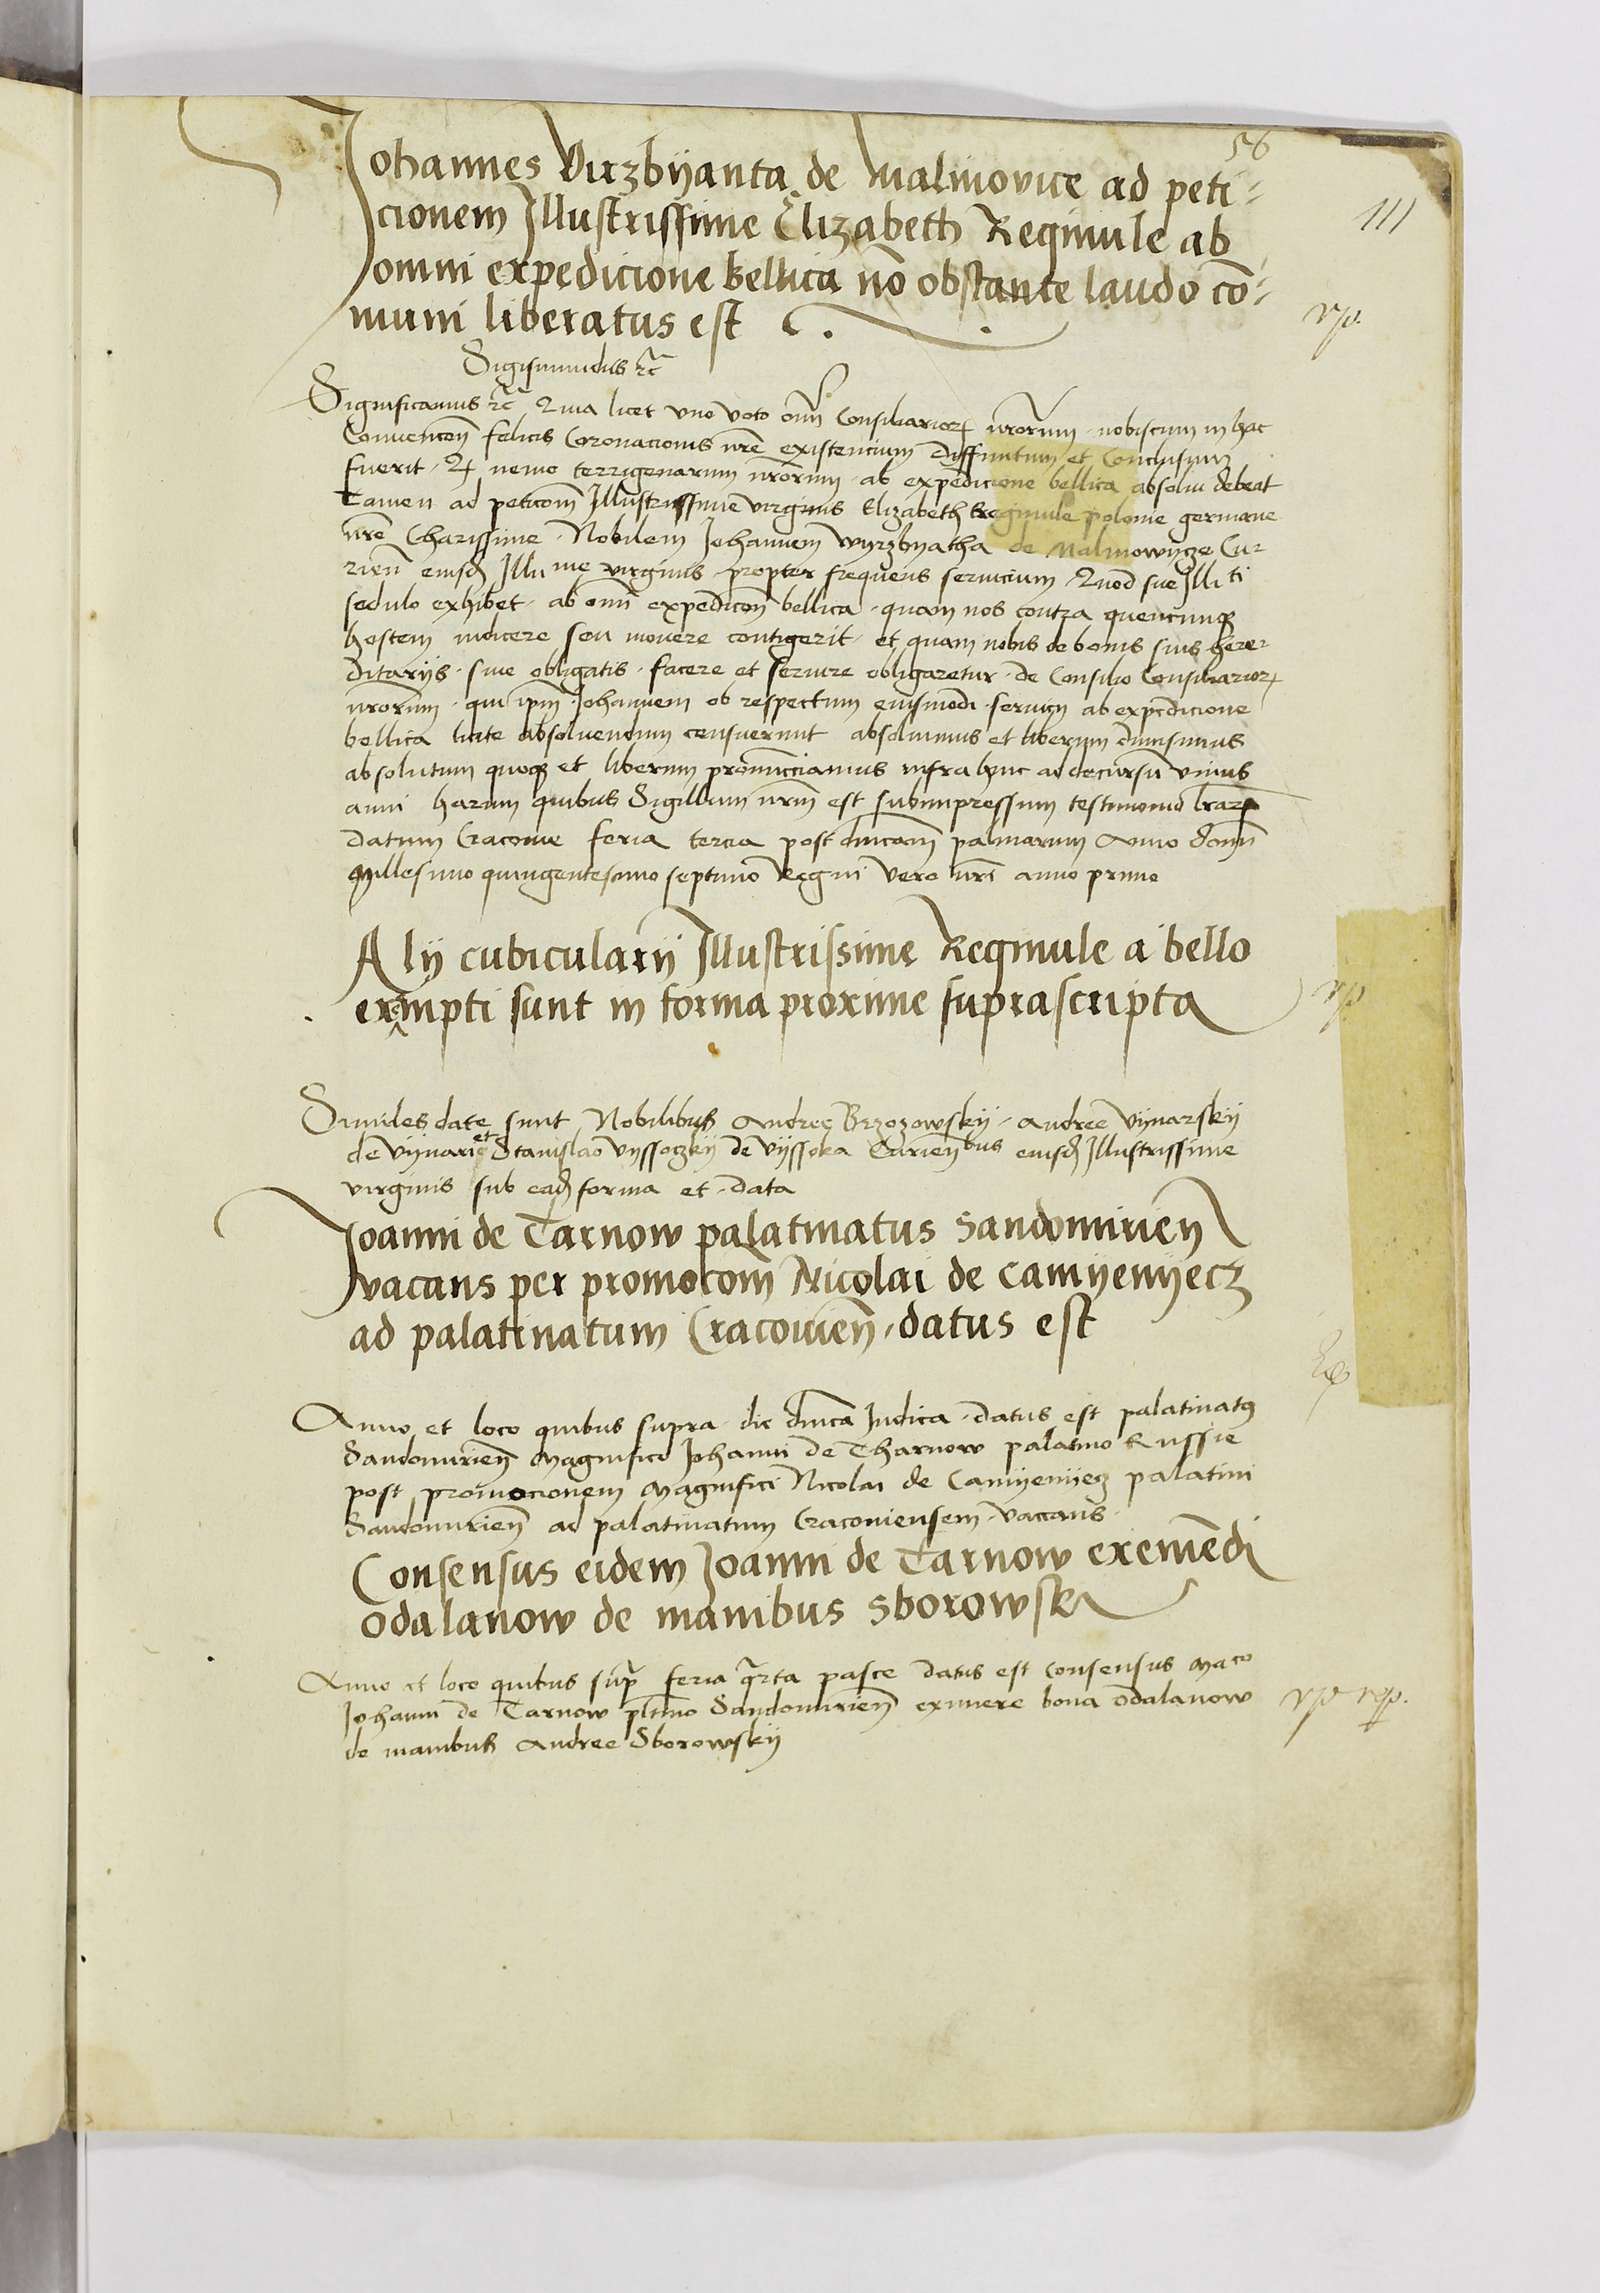 56
111
Johannes Virzbÿanta de Malinovice ad peti-
cionem Illustrissime Elizabeth Reginule ab
omni expedicione bellica nō obstante laudo cō-
muni liberatus est
vp.
Sigismundus ꝛc̄
Significamus ꝛc̄ Quia licet vno voto om̄i Consiliarioꝝ nr̄orum nobiscum in hac
Conuencōn felicis Coronacionis nr̄e existencium Diffinitum et Conclusum
fuerit nemo terrigenarum nr̄orum ab expedicione bellica absolui debeat
Tamen ad peticōm Illustrissime virginis Elizabeth Reginule polonie germane
nr̄e Charissime Nobilem Johannem Wyrzbyatha de Malinowycze Cu-
rien̄ eiusd Illume virginis propter frequens seruicium Quod sue Illti
sedulo exhibet ab omī expedicōn bellica quam nos contra quencunqꝫ
hostem indicere seu mouere contigerit et quam nobis de bonis suis here-
ditarÿs siue obligatis facere et seruire obligaretur de Consilio Consiliarioꝝ
nr̄orum qui ip̄m Johannem ob respectum eiusmodi seruicij ab expedicione
bellica licite absoluendum censuerunt absoluimus et liberum dimisimus
absolutum quoqꝫ et liberum pronuncciamus infra hinc ad decursū vnius
anni harum quibus Sigillum nr̄m est subimpressum testimonio l̄raꝝ
datum Cracouie feria tercia post dnīcam palmarum Anno domī
Millesimo quingentesimo septimo Regni vero nr̄i anno primo
Alÿ cubicularÿ Illustrissime Reginule a bello
exempti sunt in forma proxime suprascripta
vp
Similes date sunt Nobilibus Andree Brzozowskÿ Andree Vÿnarskÿ
de Vÿnari et Stanislao Vÿssoczkÿ de Vÿssoka Curien̄bus eiusd Illustrissime
virginis sub ead forma et data
Joanni de Tarnow palatinatus Sandomirien̄
vacans per promocōm Nicolai de Camÿenÿecz
ad palatinatum Cracouien̄ datus est
Anno et loco quibus supra die dnīca Iudica datus est palatinatꝰ
Sandomirien̄ Magnifico Johanni de Tharnow palatino Russie
post promocionem Magnifici Nicolai de Camÿenÿecz palatini
Sandomirien̄ ad palatinatum Cracouiensem vaccans
Consensus eidem Joanni de Tarnow eximēdi
Odalanow de manibus Sborowsk
Anno et loco quibus supr̄ feria qrta pasce datus est consensus Maco
Johanni de Tarnow pltīno Sandomirien̄ eximere bona Odalanow
de manibus Andree Sborowskÿ